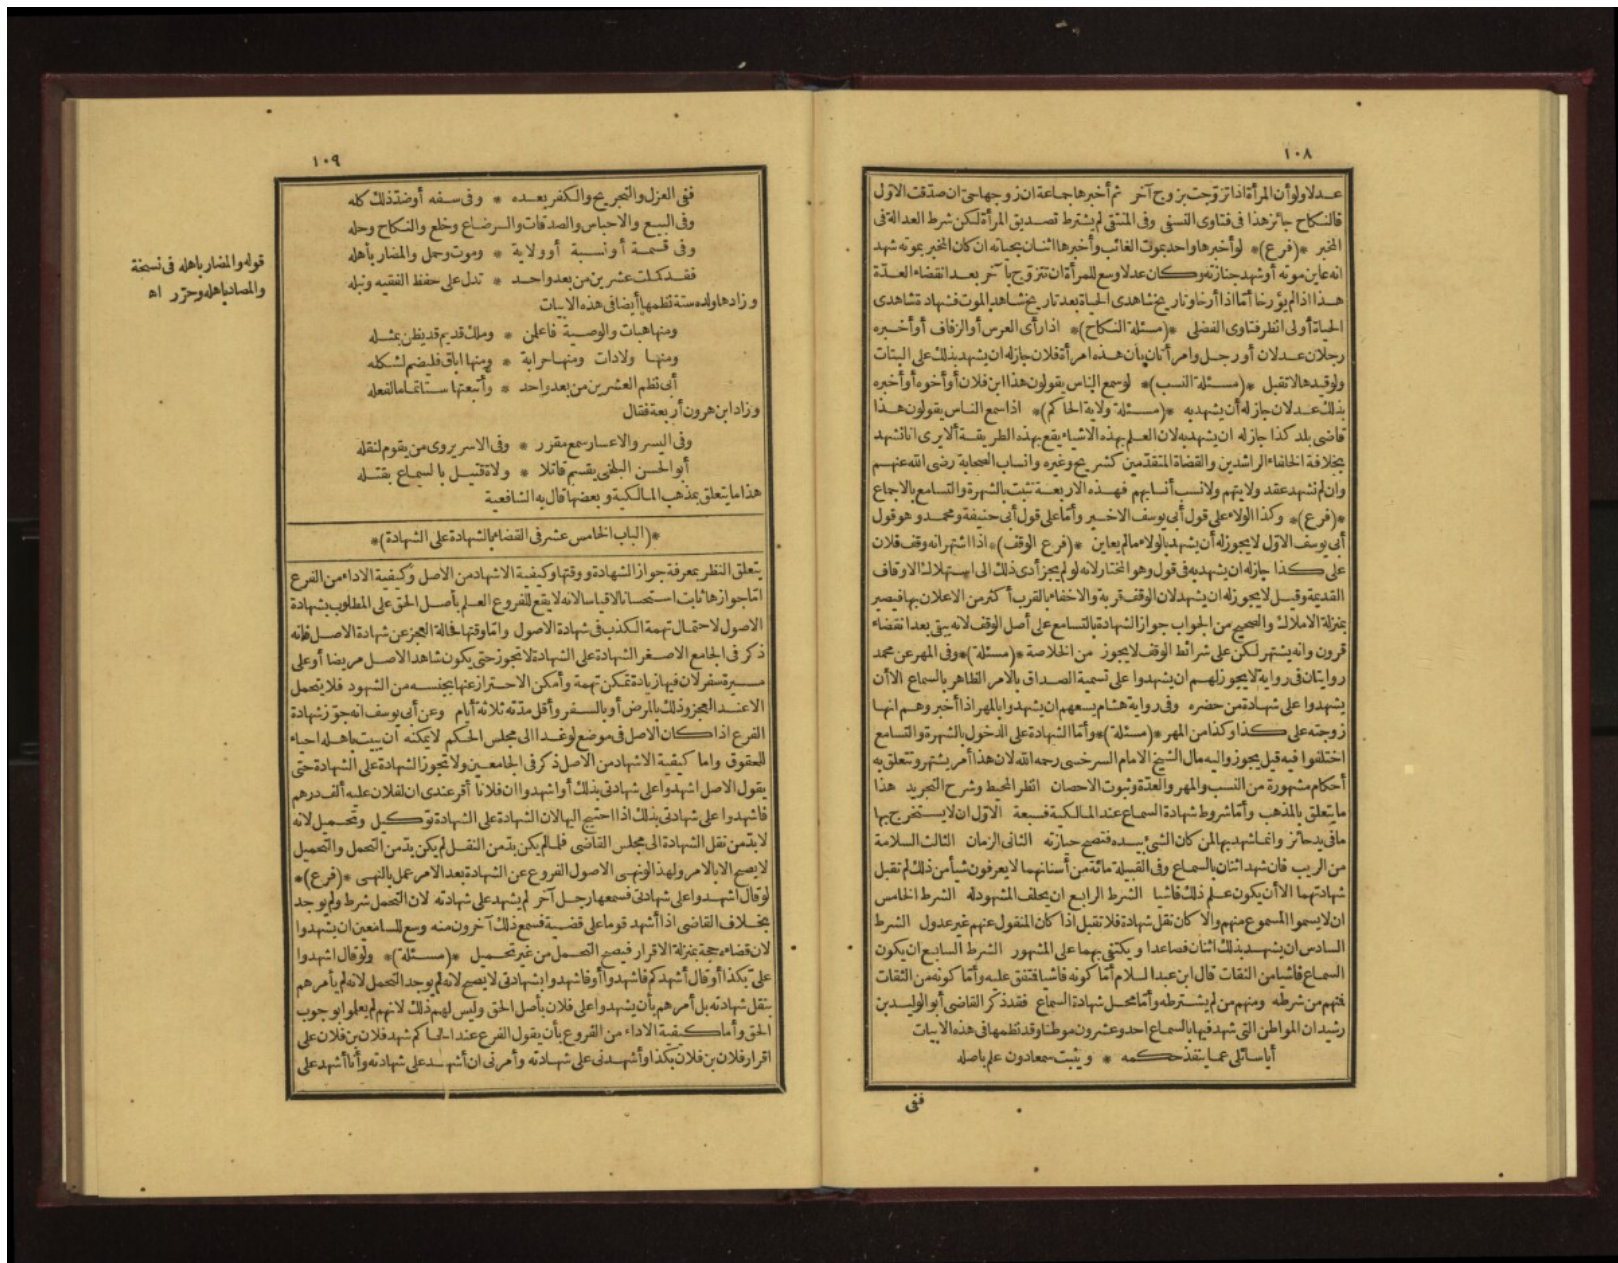 ١٠٨
عدلا ولو أن المرأة اذا تزوجت بزوج آخر ثم أخبرها جماعة ان زوجها حى ان صدقت الاول
فالنكاح جائز هذا فى فتاوى النسفى وفى المنتقى لم يشترط تصديق المرأة لكن شرط العدالة فى
المخبر *(فرع)* لو أخبرها واحد بموت الغائب وأخبرها اثنان بحياته ان كان المخبر بموته شهد
انه عاين موته أو شهد جنازته وكان عدلا وسع للمرأة ان تتزوج بآخر بعد انقضاء العدّة
هذا اذا لم يؤرخا أمّا اذا أرخا وتاريخ شاهدى الحياة بعد تاريخ شاهد الموت فشهادة شاهدى
الحياة أولى انظر فتاوى الفضلى *(مسئلة النكاح)* اذا رأى العرس أو الزفاف أو أخبره
رجلان عدلان أو رجل وامرأتان بأن هذه امرأة فلان جاز له ان يشهد بذلك على البتات
ولو قيد هالا تقبل *(مسئلة النسب)* لو سمع الناس يقولون هذا ابن فلان أو أخوه أو أخبره
بذلك عدلان جاز له أن يشهد به *(مسئلة ولاية الحاكم)* اذا سمع الناس يقولون هذا
قاضى بلد كذا جاز له ان يشهد به لان العلم بهذه الاشياء يقع بهذه الطريقة ألا يرى انا نشهد
بخلافة الخلفاء الراشدين والقضاة المتقدّمين كشريح وغيره وانساب الصحابة رضى الله عنهم
وان لم نشهد عقد ولايتهم ولا نسب أنسابهم فهذه الاربعة تثبت بالشهرة والتسامع بالاجماع
*(فرع)* وكذا الولاء على قول أبى يوسف الاخير وأمّا على قول أبى حنيفة ومحمد وهو قول
أبى يوسف الاوّل لا يجوز له أن يشهد بالولاء ما لم يعاين *(فرع الوقف)* اذا اشتهر انه وقف فلان
على كذا جاز له ان يشهد به فى قول وهو المختار لانه لو لم يجز أدى ذلك الى استهلاك الاوقاف
القديمة وقيل لا يجوز له ان يشهد لان الوقف قربة والاخفاء بالقرب أكثر من الاعلان بها فيصير
بمنزلة الاملاك والصحيح من الجواب جواز الشهادة بالتسامع على أصل الوقف لانه يبقى بعد انقضاء
قرون وانه يشتهر لكن على شرائط الوقف لا يجوز من الخلاصة *(مسئلة)* وفى المهر عن محمد
روايتان فى رواية لا يجوز لهم ان يشهدوا على تسمية الصداق بالامر الظاهر بالسماع الا أن
يشهدوا على شهادة من حضره وفى رواية هشام يسعهم ان يشهدوا بالمهر اذا أخبروهم انها
زوجته على كذا وكذا من المهر *(مسئلة)* وأمّا الشهادة على الدخول بالشهرة والتسامع
اختلفوا فيه قيل يجوز واليه مال الشيخ الامام السرخسى رحمه الله لان هذا أمر يشتهر وتتعلق به
أحكام مشهورة من النسب والمهر والعدّة وثبوت الاحصان انظر المحيط وشرح التجريد هذا
ما يتعلق بالمذهب وأمّا شروط شهادة السماع عند المالكية فسبعة الاوّل ان لا يستخرج بها
ما فى يد حائز وانما شهد بها لمن كان الشئ بيده فتصح حيازته الثانى الزمان الثالث السلامة
من الريب فان شهد اثنان بالسماع وفى القبيلة مائة من أسنانهما لا يعرفون شيأ من ذلك لم تقبل
شهادتهما الا أن يكون علم ذلك فاشيا الشرط الرابع ان يحلف المشهود له الشرط الخامس
ان لا يسموا المسموع منهم والا كان نقل شهادة فلا تقبل اذا كان المنقول عنهم غير عدول الشرط
السادس ان يشهد بذلك اثنان فصاعدا ويكتفى بهما على المشهور الشرط السابع ان يكون
السماع فاشيا من الثقات قال ابن عبد السلام أمّا كونه فاشيا فتفق عليه وأمّا كونه من الثقات
فمنهم من شرطه ومنهم من لم يشترطه وأمّا محل شهادة السماع فقد ذكر القاضى أبو الوليد بن
رشيد ان المواطن التى شهد فيها بالسماع احد وعشرون موطنا وقد نظمها فى هذه الابيات
أيا سائلى عما ينفذ حكمه * ويثبت سمعا دون علم باصله
ففى
١٠٩
ففى العزل والتجريح والكفر بعده * وفى سفه أو ضدّ ذلك كله
وفى البيع والاحباس والصدقات والرضاع وخلع والنكاح وحله
وفى قسمة أو نسبة أو ولاية * وموت وحمل والمضار بأهله
فقد كملت عشرين من بعد واحد * تدل على حفظ الفقيه ونبله
وزادها ولده ستة نظمها أيضا فى هذه الابيات
ومنها هبات والوصية فاعلمن * وملك قديم قد يظن بمثله
ومنها ولادات ومنها حرابة * ومنها اباق فليضم لشكله
أبى نظم العشرين من بعد واحد * وأتبعتها ستا تماما لفعله
وزاد ابن هرون أربعة فقال
وفى اليسر والاعسار سمع مقرر * وفى الاسر يروى من يقوم لنقله
أبو الحسن البلخى بقسم قاتلا * ولاة قتيل بالسماع بقتله
هذا ما يتعلق بمذهب المالكية وبعضها قال به الشافعية
*(الباب الخامس عشر فى القضاء بالشهادة على الشهادة)*
يتعلق النظر بمعرفة جواز الشهادة ووقتها وكيفية الاشهاد من الاصل وكيفية الاداء من الفرع
امّا جوازها ثابت استحسانا لا قياسا لانه لا يقع للفروع العلم بأصل الحق على المطلوب بشهادة
الاصول لاحتمال تهمة الكذب فى شهادة الاصول وامّا وقتها فحالة العجز عن شهادة الاصل فانه
ذكر فى الجامع الاصغر الشهادة على الشهادة لا تجوز حتى يكون شاهد الاصل مريضا أو على
مسيرة سفر لان فيها زيادة تمكن تهمة وأمكن الاحتراز عنها بجنسه من الشهود فلا يتحمل
الا عند العجز وذلك بالمرض أو بالسفر وأقل مدّته ثلاثة أيام وعن أبى يوسف انه جوّز شهادة
الفرع اذا كان الاصل فى موضع لو غدا الى مجلس الحكم لا يمكنه أن يبيت باهله احياء
للحقوق واما كيفية الاشهاد من الاصل ذكر فى الجامعين ولا تجوز الشهادة على الشهادة حتى
يقول الاصل اشهدوا على شهادتى بذلك أو اشهدوا ان فلانا أقر عندى ان لفلان عليه ألف درهم
فاشهدوا على شهادتى بذلك اذا احتيج اليها لان الشهادة على الشهادة توكيل وتحميل لانه
لا بدّ من نقل الشهادة الى مجلس القاضى فلما لم يكن بدّ من النقل لم يكن بدّ من التحمل والتحميل
لا يصح الا بالامر ولهذا لو نهى الاصول الفروع عن الشهادة بعد الامر عمل بالنهى *(فرع)*
لو قال اشهدوا على شهادتى فسمعها رجل آخر لم يشهد على شهادته لان التحمل شرط ولم يوجد
بخلاف القاضى اذا أشهد قوما على قضية فسمع ذلك آخرون منه وسع للسامعين ان يشهدوا
لان قضاءه حجة بمنزلة الاقرار فيصح التحمل من غير تحميل *(مسئلة)* ولو قال اشهدوا
علىّ بكذا أو قال أشهدكم فاشهدوا أو فاشهدوا بشهادتى لا يصح لانه لم يوجد التحمل لانه لم يأمرهم
بنقل شهادته بل أمرهم بأن يشهدوا على فلان بأصل الحق وليس لهم ذلك لانهم لم يعلموا بوجوب
الحق وأما كيفية الاداء من الفروع بأن يقول الفرع عند الحاكم شهد فلان بن فلان على
اقرار فلان بن فلان بكذا وأشهدنى على شهادته وأمرنى ان أشهد على شهادته وأنا أشهد على
قوله والمضار باهله فى نسخة
والمصاد باهله وحرّر اه